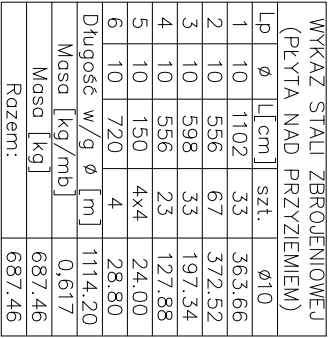 WYKAZ STALI ZBROJENIOWEJ
(PŁYTA NAD PRZYZIEMIEM)
Lp ø L[cm] szt. ø10
1 10 1102 33 363.66
2 10 556 67 372.52
3 10 598 33 197.34
4 10 556 23 127.88
5 10 150 4x4 24.00
6 10 720 4 28.80
Długość w/g ø [m] 1114.20
Masa [kg/mb] 0,617
Masa [kg] 687.46
Razem: 687.46